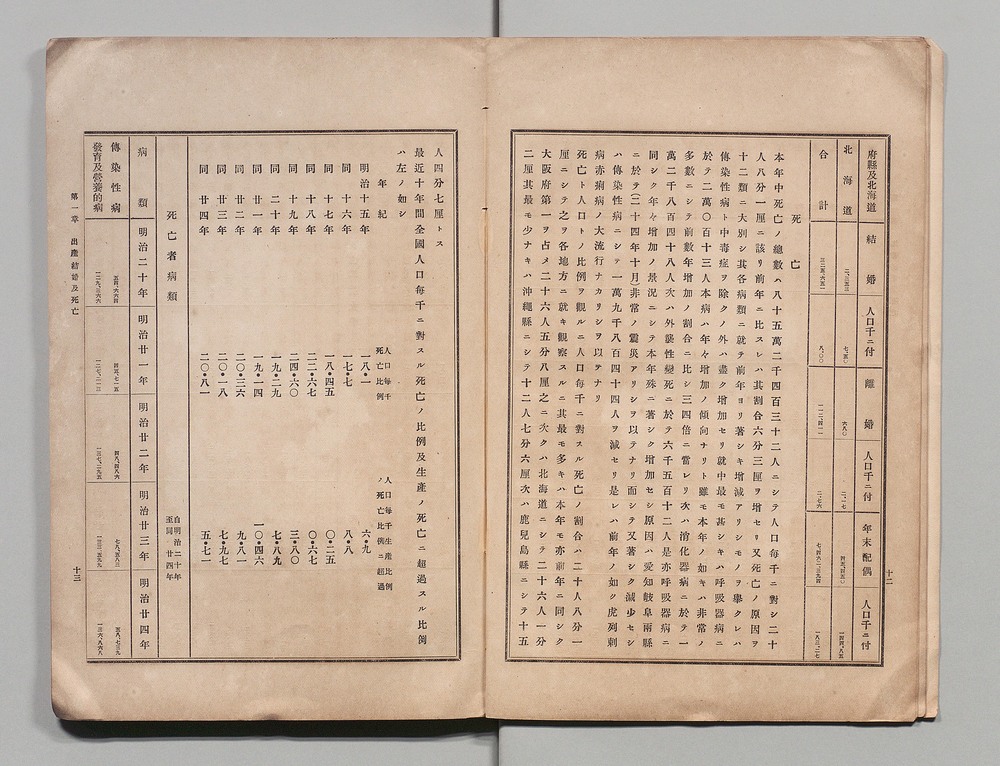 十二
府縣及北海道
結婚
人口千ニ付
離婚
人口千ニ付
年末配偶
人口千ニ付
北海道
合計
死亡
本年中死亡ノ總數ハ八十五萬二千四百三十二人ニシテ人口每千ニ對シ二十
人八分一厘ニ該リ前年ニ比スレハ其割合六分三厘ヲ增セリ又死亡ノ原因ヲ
十二類ニ大別シ其各病類ニ就テ前年ヨリ著シキ增減アリシモノヲ擧クレハ
傳染性病ト中毒症ヲ除クノ外ハ盡ク增加セリ就中最モ甚シキハ呼吸器病ニ
於テ二萬〇百十三人本病ハ年々增加ノ傾向ナリト雖モ本年ノ如キハ非常ノ
多數ニシテ前數年增加ノ割合ニ比シ三四倍ニ當レリ次ハ消化器病ニ於テ一
萬二千八百四十八人次ハ外襲性變死ニ於テ六千五百十二人是亦呼吸器病ニ
同シク年々增加ノ景況ニシテ本年殊ニ著シク增加セシ原因ハ愛知岐阜兩縣
ニ於テ(二十四年十月)非常ノ震災アリシヲ以テナリ而シテ又著シク減少セシ
ハ傳染性病ニシテ一萬九千八百四十四人ヲ減セリ是レハ前年ノ如ク虎列剌
病赤痢病ノ大流行ナカリシヲ以テナリ
死亡ト人口トノ比例ヲ觀ルニ人口每千ニ對スル死亡ノ割合ハ二十人八分一
厘ニシテ之ヲ各地方ニ就キ觀察スルニ其最モ多キハ本年モ亦前年ニ同シク
大阪府第一ヲ占メ二十六人五分八厘之ニ次クハ北海道ニシテ二十六人一分
二厘其最モ少ナキハ沖繩縣ニシテ十二人七分六厘次ハ鹿兒島縣ニシテ十五
人四分七厘トス
最近十年間全國人口每千ニ對スル死亡ノ比例及生產ノ死亡ニ超過スル比例
ハ左ノ如シ
年紀
人口每千
死亡比例
人口每千生產比例
ノ死亡比例ニ超過
明治十五年 一八・一 六・九
同十六年 一七・七 八・八
同十七年 一八・四五 〇・二五
同十八年 二三・六七 〇・六七
同十九年 二四・六〇 三・八〇
同二十年 一九・二九 七・八九
同廿一年 一九・一四 一〇・四六
同廿二年 二〇・三六 九・八一
同廿三年 二〇・一八 七・九七
同廿四年 二〇・八一 五・七一
死亡者病類
自明治二十年
至同廿四年
病類
明治二十年
明治廿一年
明治廿二年
明治廿三年
明治廿四年
傳染性病
發育及營養的病
第一章 出產結婚及死亡
十三